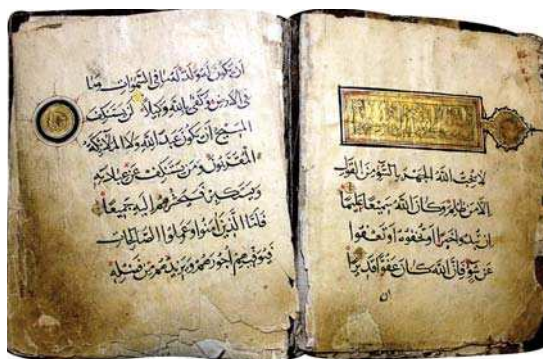 لا يحب الله الجهر بالسوء من القول
الا من ظلم وكان الله سميعا عليما
ان تبدوا خيرا او تخفوه او تعفوا
عن سوء فان الله كان عفوا قديرا
ان
ان يكون له ولد له ما في السموات وما
في الارض وكفى بالله وكيلا لن يستنكف
المسيح ان يكون عبدا لله ولا الملائكة
المقربون ومن يستنكف عن عبادته
ويستكبر فسيحشرهم اليه جميعا
فاما الذين امنوا وعملوا الصالحات
فيوفيهم اجورهم ويزيدهم من فضله